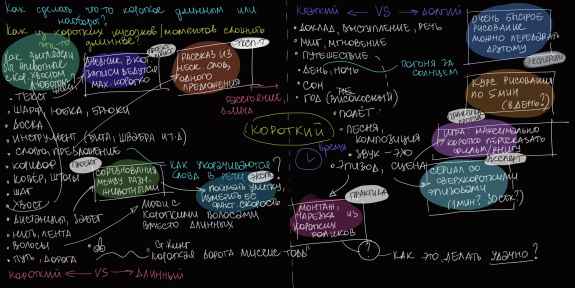 Как сделать что-то короткое длинным или
наоборот?
Как из коротких кусочков/моментов сложить
что-то длинное?
Как выглядели
бы животные
с кор. хвостом
дневник, в кот.
записи ведутся
мах. коротко
рассказ из
неск. слов,
одного
предложения
расстояние,
длина
• текст
• шаги, юбка, брюки
• доска
• инструмент (бита, швабра и т.д)
• слово, предложение
• коридор
• ковёр, шторы
• шаг
• хвост
• дистанция, забег
• нить, лента
• волосы
• путь, дорога
проект
соревнования
между разн.
животными
как укорачиваются
слова в речи?
поймать улитку,
измерить её
факт. скорость
люди с
короткими волосами
вместо длинных
С. Кинг
"Короткая дорога миссис Тодд"
короткий ← VS → длинный
короткий
краткий ← VS → долгий
• доклад, выступление, речь
• миг, мгновение
• путешествие
• день, ночь
• сон
• год (високосный)
• полёт
• песня,
композиция
• звук - эхо
• эпизод, сцена
погоня за
солнцем
время
очень быстрое
рисование
можно передавать
другому
курс рисования
по 5 мин
(в день?)
практика
игра: максимально
коротко пересказать
фильм/книгу
сериал со
сверхкороткими
эпизодами
(1 мин? 30 сек?)
практика
монтаж,
нарезка из
коротких
роликов
?
как это делать удачно?